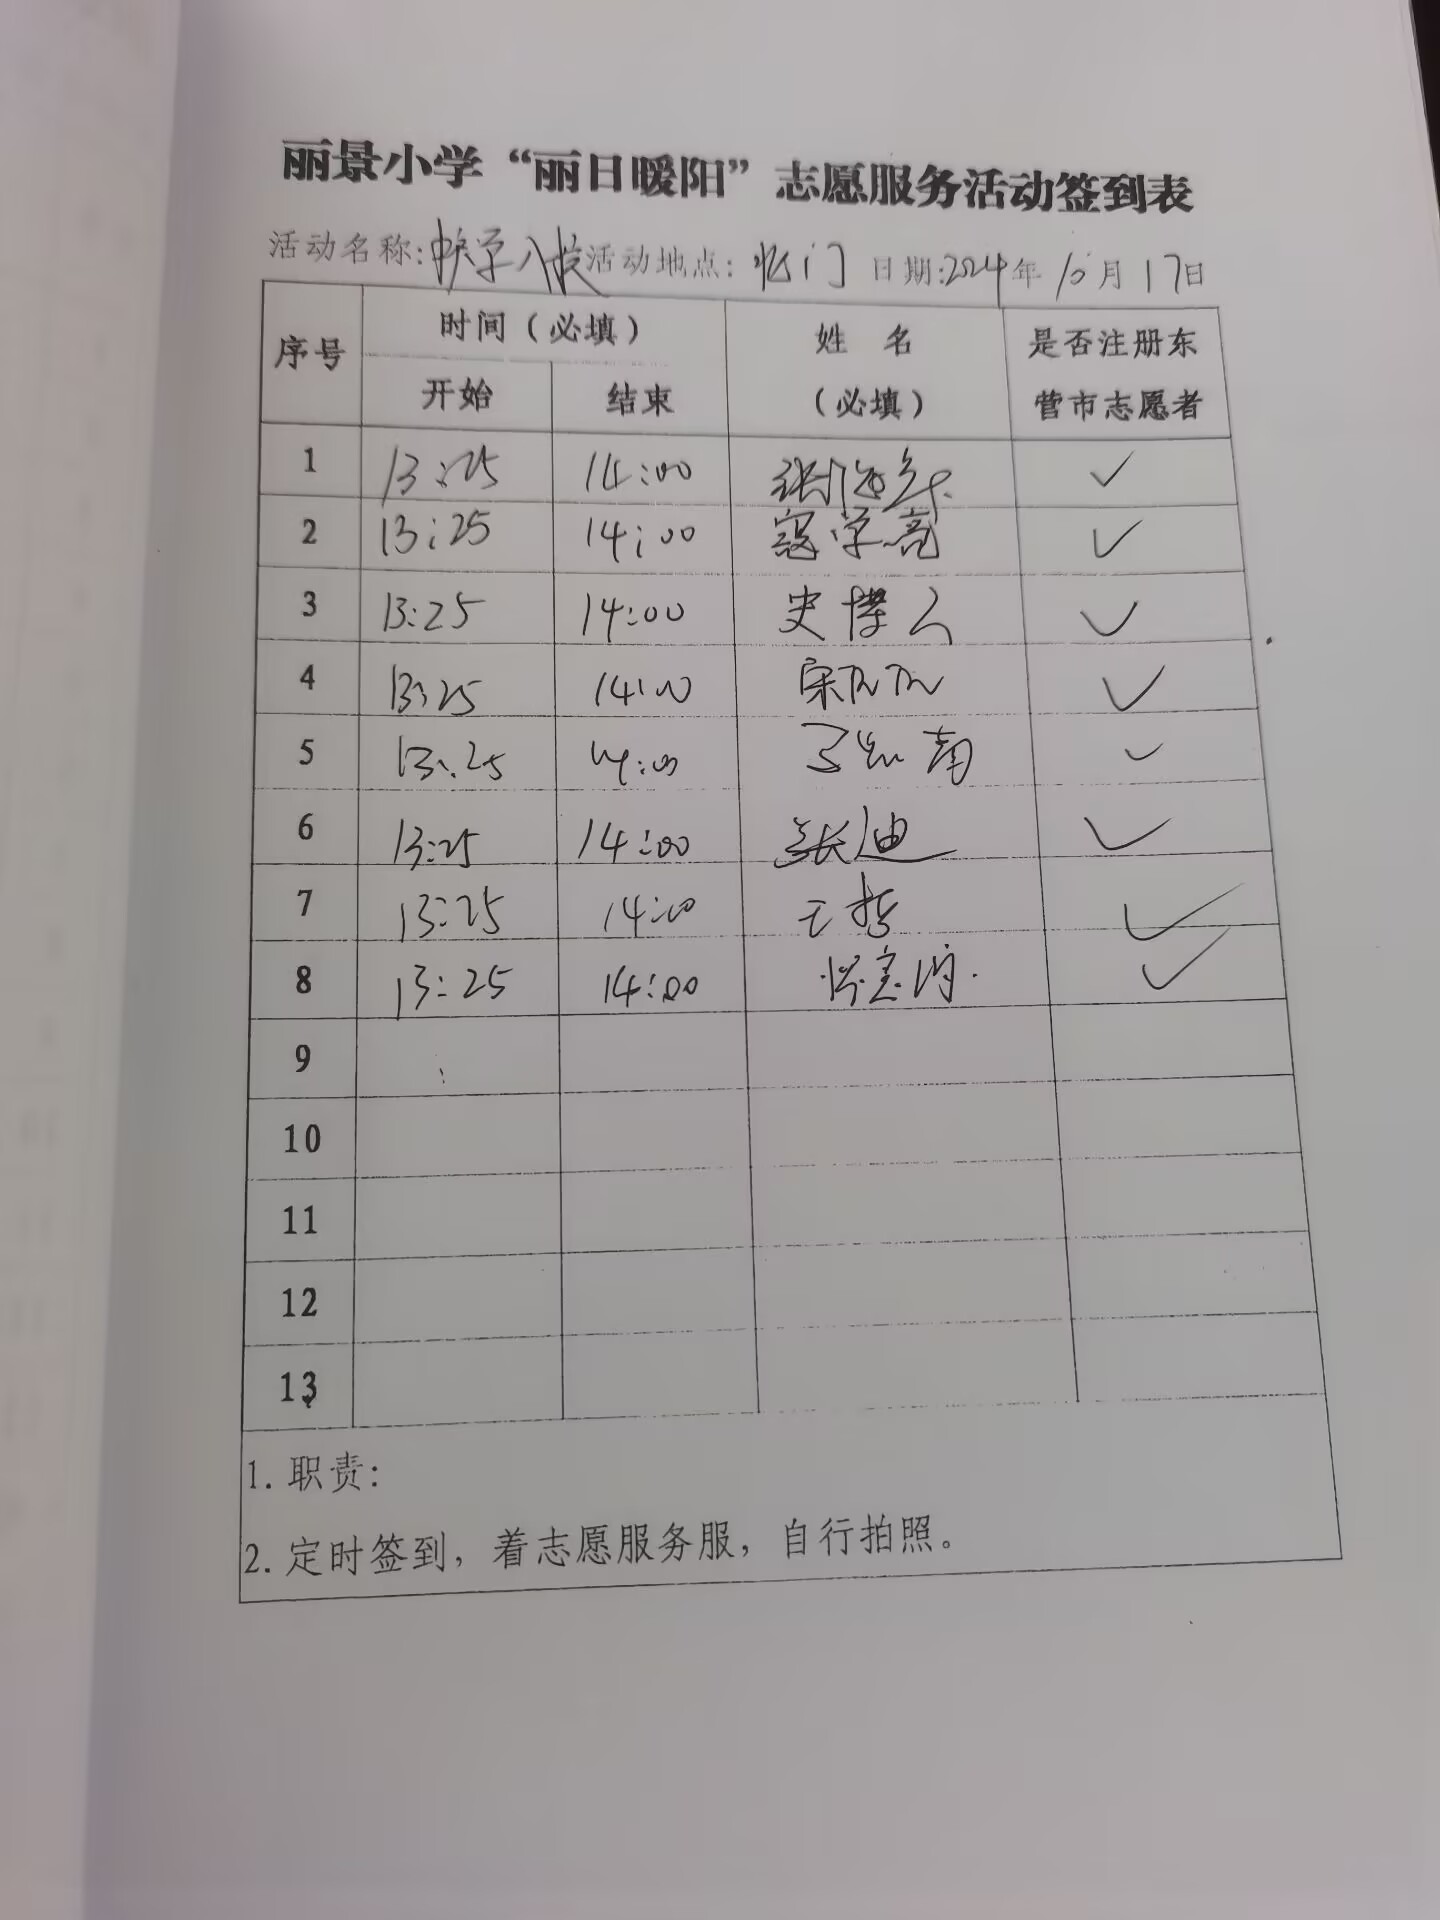 丽景小学“丽日暖阳”志愿服务活动签到表
活动名称: 学入校 活动地点: 北门 日期:2024年10月17日
序号 时间(必填) 姓 名 是否注册东
开始 结束 (必填) 营市志愿者
1 13:25 14:00 张 ✓
2 13:25 14:00 寇学亮 ✓
3 13:25 14:00 史博人 ✓
4 13:25 14:00 宋 ✓
5 13:25 14:00 ✓
6 13:25 14:00 张迪 ✓
7 13:25 14:00 王哲 ✓
8 13:25 14:00 ✓
9
10
11
12
13
1. 职责:
2. 定时签到，着志愿服务服，自行拍照。